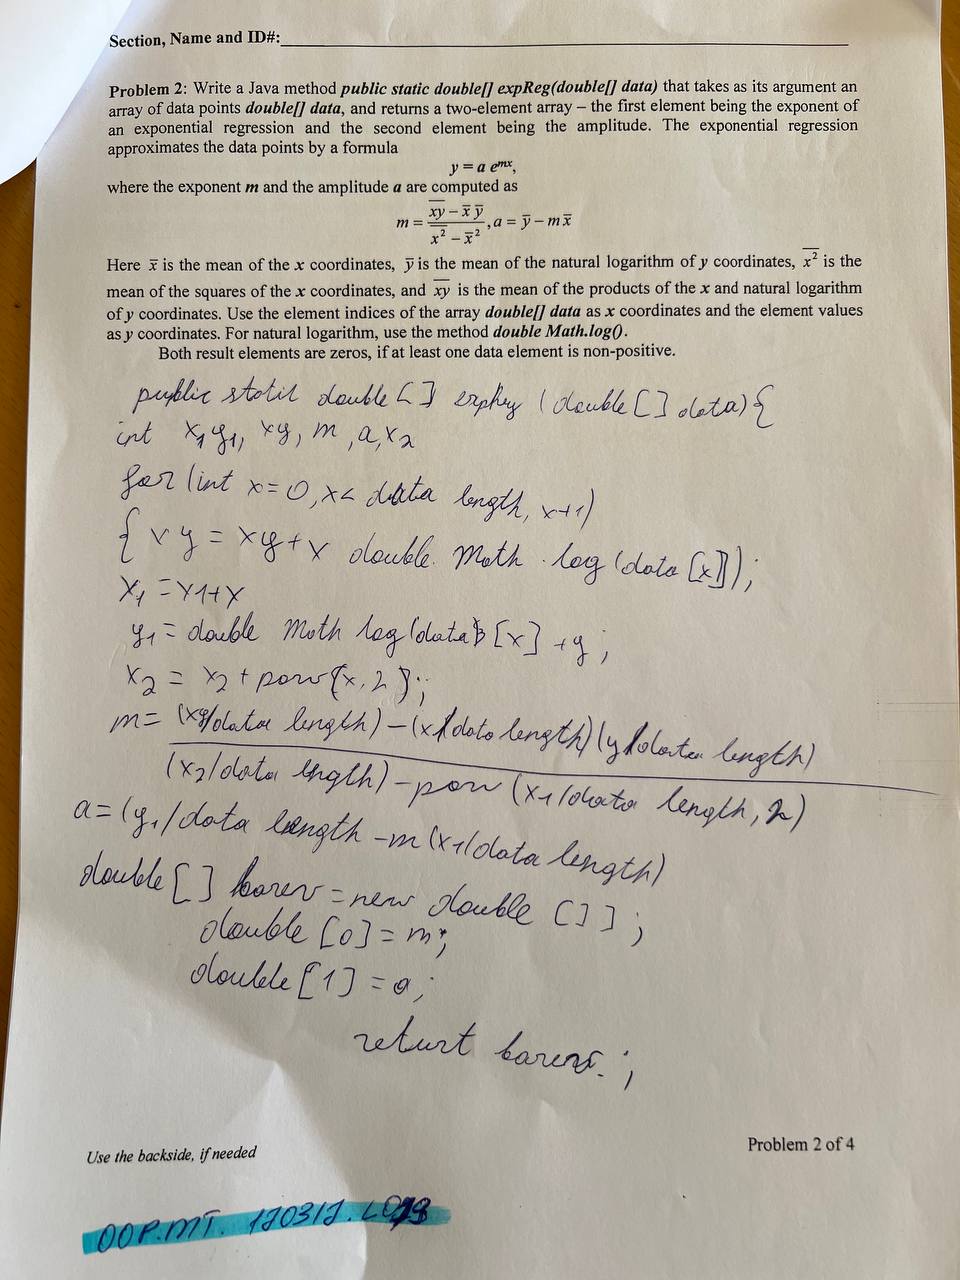 Section, Name and ID#:
Problem 2: Write a Java method public static double[] expReg(double[] data) that takes as its argument an
array of data points double[] data, and returns a two-element array – the first element being the exponent of
an exponential regression and the second element being the amplitude. The exponential regression
approximates the data points by a formula
y = a e^{mx},
where the exponent m and the amplitude a are computed as
m = \frac{\overline{xy} - \bar{x}\,\bar{y}}{\overline{x^2} - \bar{x}^2}, a = \bar{y} - m\bar{x}
Here x̄ is the mean of the x coordinates, ȳ is the mean of the natural logarithm of y coordinates, \overline{x^2} is the
mean of the squares of the x coordinates, and \overline{xy} is the mean of the products of the x and natural logarithm
of y coordinates. Use the element indices of the array double[] data as x coordinates and the element values
as y coordinates. For natural logarithm, use the method double Math.log().
Both result elements are zeros, if at least one data element is non-positive.
public static double [] (double [] data) {
int x1 y1, xy, m, a, x2
for (int x=0, x< data length, x+1)
{ xy = xy+x double. Math . log (data [x]);
x1 = x1+x
y1 = double Math log (data) [x] +y ;
x2 = x2 + pow(x, 2);
m= (xy/data length) - (x/data length)(y/data length)
(x2/data length) - pow (x1/data length, 2)
a= (y1/data length - m (x1/data length)
double [] = new double [] ;
double [0] = m;
double [1] = a;
;
Use the backside, if needed
Problem 2 of 4
OOP.MT. 170317.